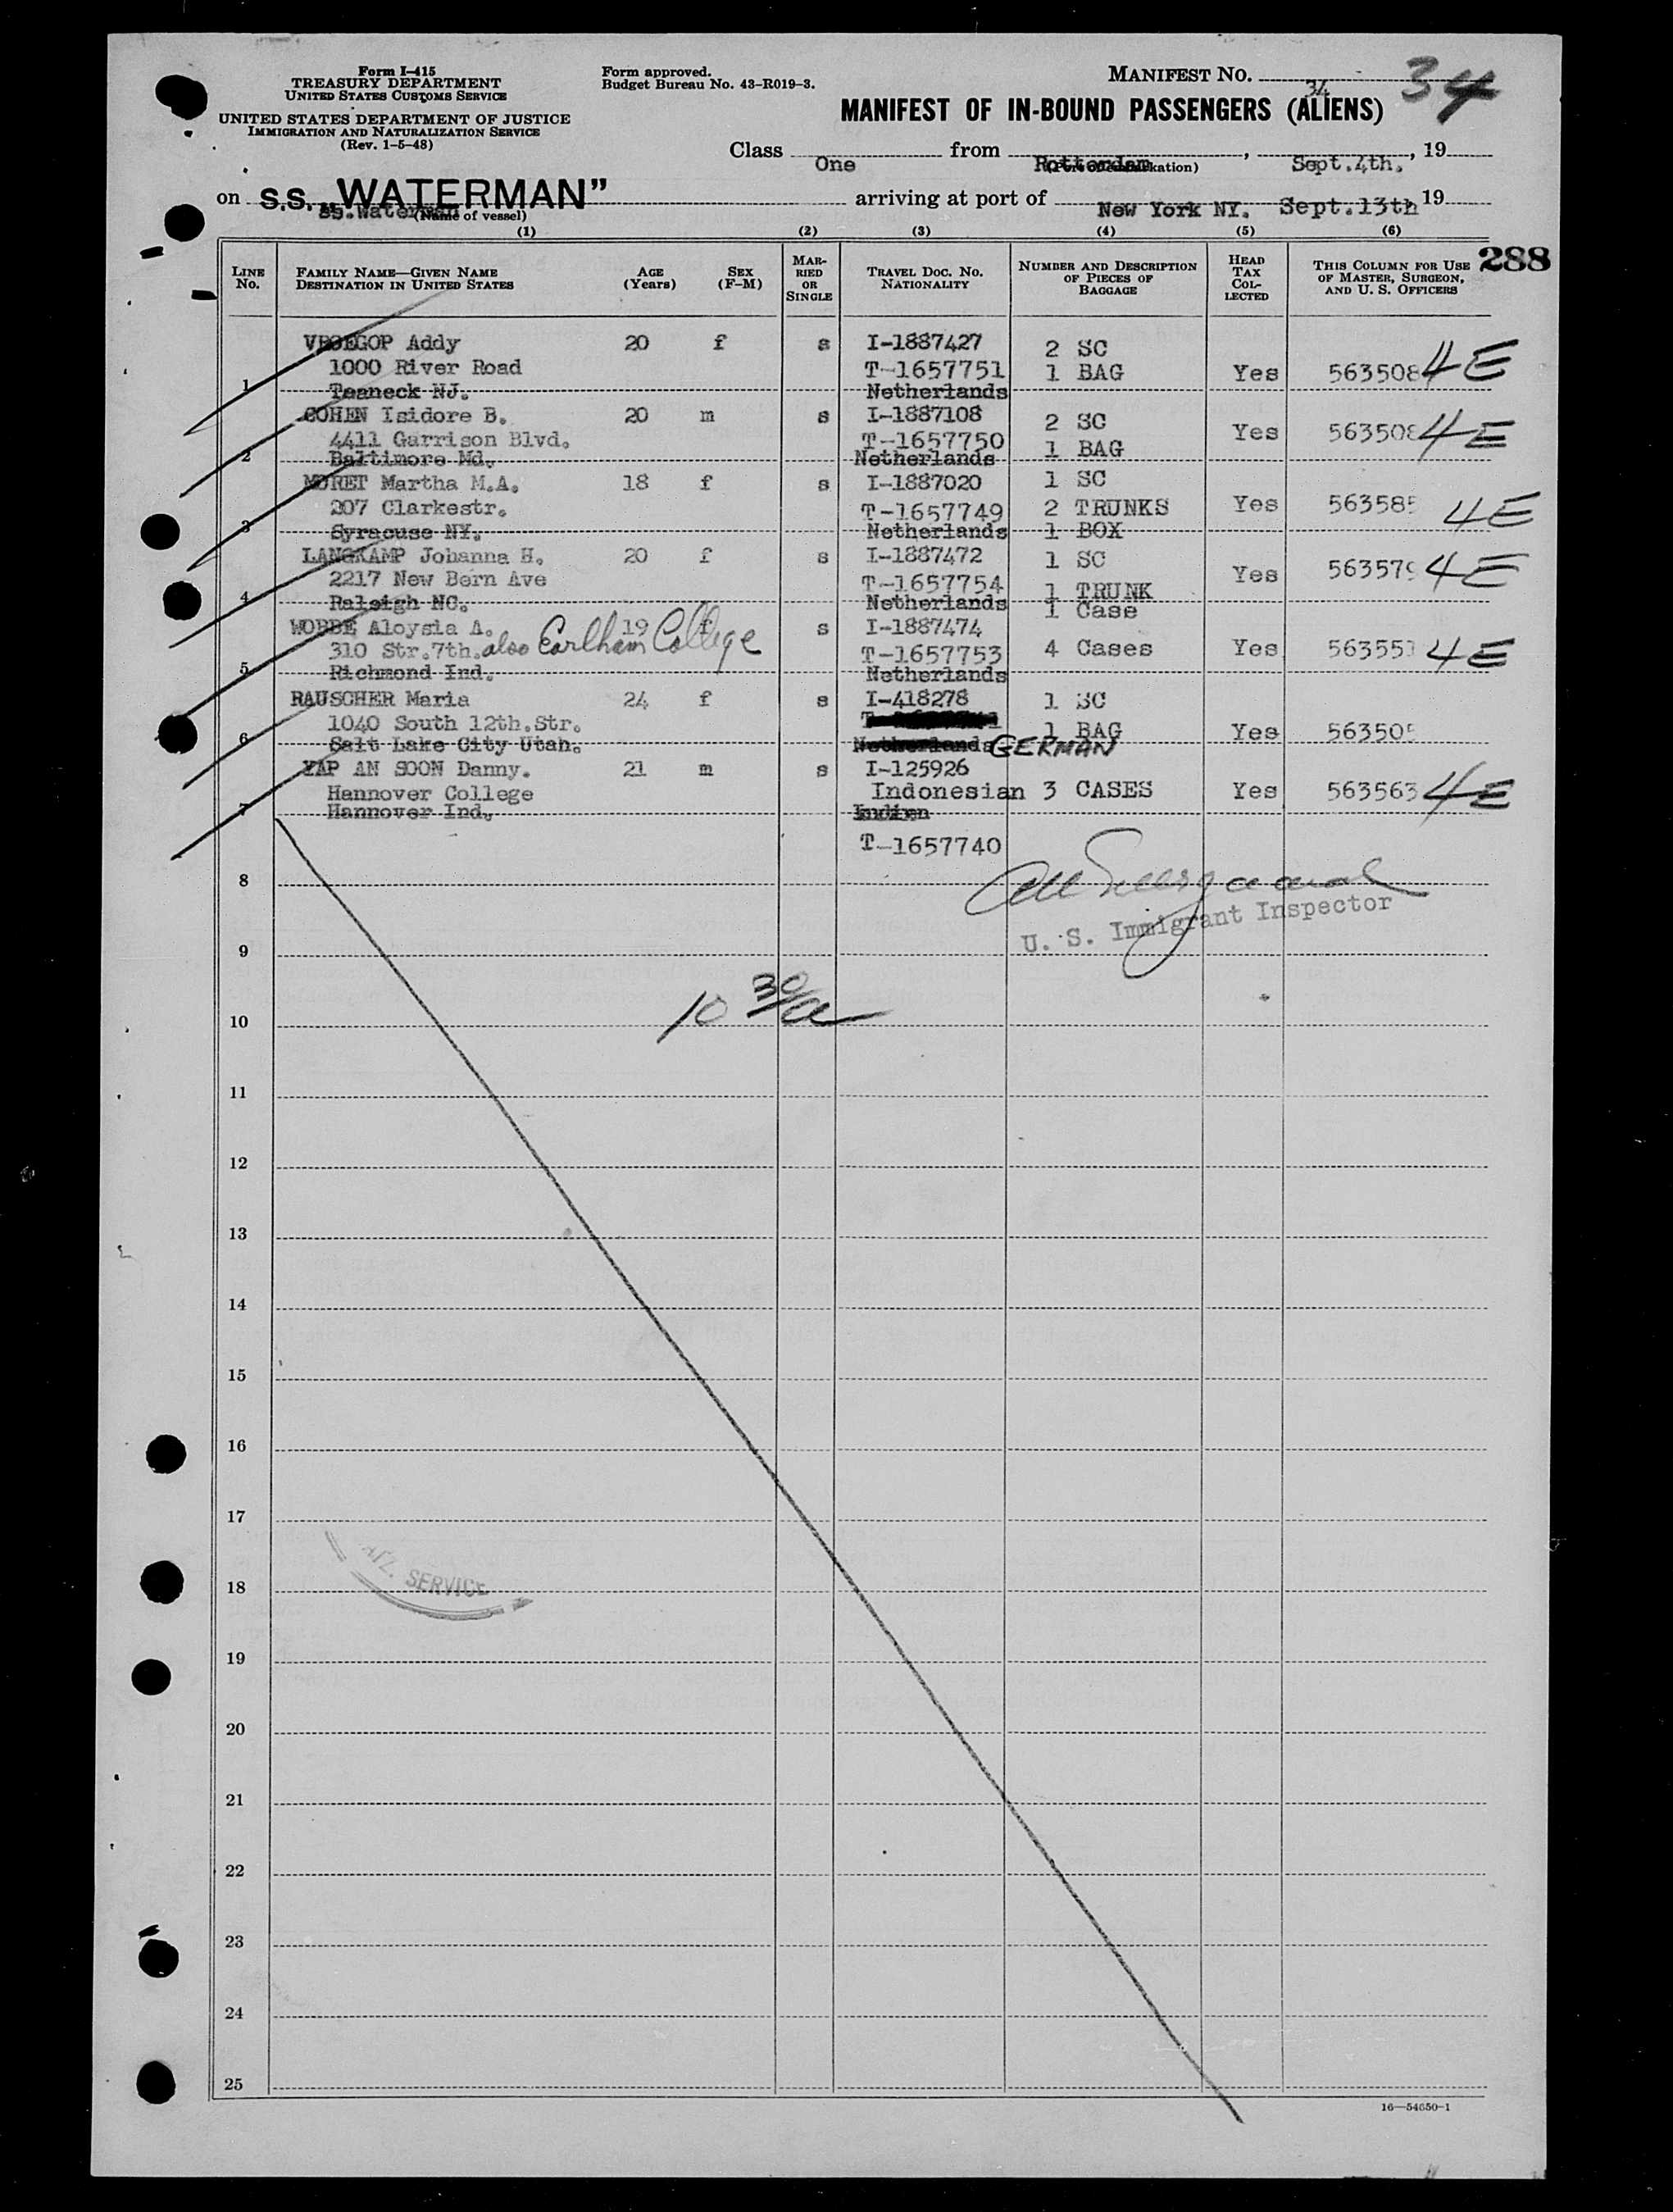 Form I-415
TREASURY DEPARTMENT
UNITED STATES CUSTOMS SERVICE
UNITED STATES DEPARTMENT OF JUSTICE
IMMIGRATION AND NATURALIZATION SERVICE
(Rev. 1-5-48)
Form approved.
Budget Bureau No. 43-R019-3.
MANIFEST NO. 34
34
MANIFEST OF IN-BOUND PASSENGERS (ALIENS)
Class One from Rotterdam, Sept.4th., 19
on S.S. „WATERMAN” arriving at port of New York NY. Sept.13th 19
ss.Waterman
(Name of vessel)
(1) (2) (3) (4) (5) (6)
288
LINE No. FAMILY NAME—GIVEN NAME DESTINATION IN UNITED STATES AGE (Years) SEX (F-M) MARRIED OR SINGLE TRAVEL DOC. NO. NATIONALITY NUMBER AND DESCRIPTION OF PIECES OF BAGGAGE HEAD TAX COLLECTED THIS COLUMN FOR USE OF MASTER, SURGEON, AND U. S. OFFICERS
VROEGOP Addy 20 f s I-1887427 2 SC
1000 River Road T-1657751 1 BAG Yes 563508 4E
1 Teaneck NJ. Netherlands
COHEN Isidore B. 20 m s I-1887108 2 SC
4411 Garrison Blvd. T-1657750 1 BAG Yes 563508 4E
2 Baltimore Md. Netherlands
MORET Martha M.A. 18 f s I-1887020 1 SC
207 Clarkestr. T-1657749 2 TRUNKS Yes 563585 4E
3 Syracuse NY. Netherlands 1 BOX
LANGKAMP Johanna H. 20 f s I-1887472 1 SC
2217 New Bern Ave T-1657754 1 TRUNK Yes 563579 4E
4 Raleigh NC. Netherlands 1 Case
WOBBE Aloysia A. 19 f s I-1887474
310 Str.7th. also Earlham College T-1657753 4 Cases Yes 56355 4E
5 Richmond Ind. Netherlands
RAUSCHER Maria 24 f s I-418278 1 SC
1040 South 12th.Str. 1 BAG Yes 563505
6 Salt Lake City Utah. Netherlands GERMAN
YAP AN SOON Danny. 21 m s I-125926
Hannover College Indonesian 3 CASES Yes 563563 4E
7 Hannover Ind. Indian
T-1657740
8
U. S. Immigrant Inspector
9
10 30/a
10
11
12
13
14
15
16
17
18
SERVICE
19
20
21
22
23
24
25
16—54650-1